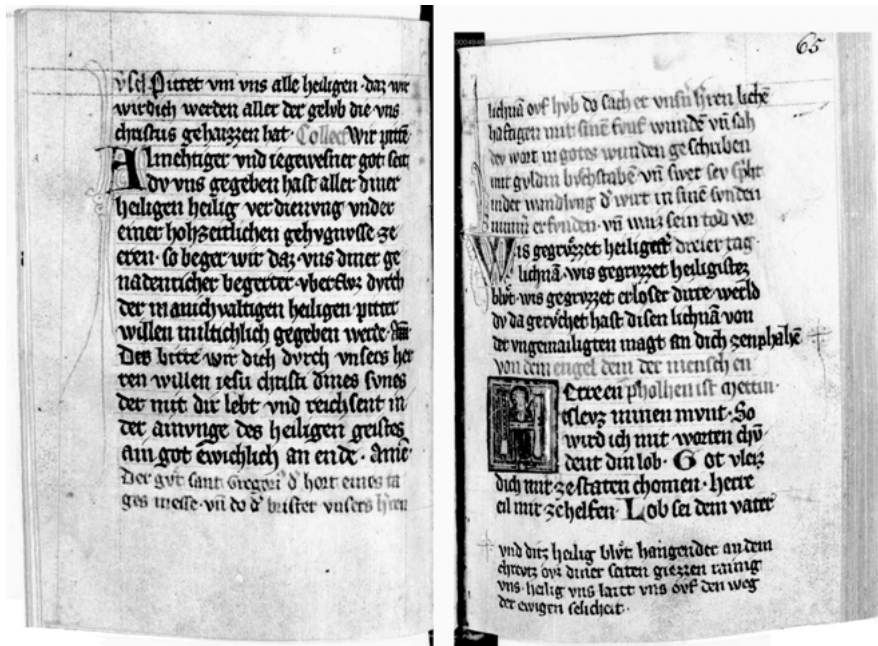 vͦsel Pittet vm vns alle heiligen · daz wir
wirdich werden aller der gelvb die vns
christus gehaizzen hat · Collect Wir pittē
Almehtiger vnd iegewesner got seit
dv vns gegeben hast aller diner
heiligen heilig verdienvng vnder
einer hohzeitlichen gehvgnvsse ze
eren · so beger wir daz vns diner ge
nadenricher begerter vberflvz dvrch
der manichvaltigen heiligen pitter
willen miltichlich gegeben werde ·
Des bitte wir dich dvrch vnsers her
ren willen iesu christi dines svnes
der mit dir lebt vnd reichsent in
der ainvnge des heiligen geistes
ain got ewichlich an ende · Amē
Der gvt sant Gregori dͤ hort eines ta
ges messe · vn̄ do dͤ brister vnsers hren
65
lichnā ovf hvb do sach er vnsn̄ hren lichē
haftigen mit sinē fvnf wundē vn̄ sah
dev wort in gotes wunden geschriben
mit gvldin bvchstabē · vn̄ swer sev spͥcht
in der wandlvng dͤ wirt in sinē svnden
nimm̄ erfvnden · vn̄ waiz sein tod vor
Wis gegrvzzet heiligest dreier tag
lichnā · wis gegrvzzet heiligistez
blvͦt · wis gegrvzzet erloser dirre werld
dv da gervͦchet hast disen lichnā von
der vngemailigten magt an dich zenphahē
von dem engel dem der menschen
Herre en pholhen ist Mettin ·
eslevz minen mvnt · So
wird ich mit worten chv̄
dent din lob · Got vleiz
dich mir ze staten chomen · herre
eil mir ze helfen · Lob sei dem vater
vnd ditz heilig blvͦt hangender an dem
chrevtz ovz diner seiten giezzen rainig
vns · heilig vns lait vns ovf den weg
der ewigen selicheit ·